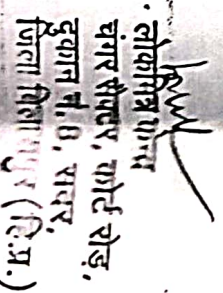 लोकमित्र केन्द्र
चंगर सैक्टर, कोर्ट रोड,
दुकान नं. 8, सदर,
जिला बिलासपुर (हि.प्र.)